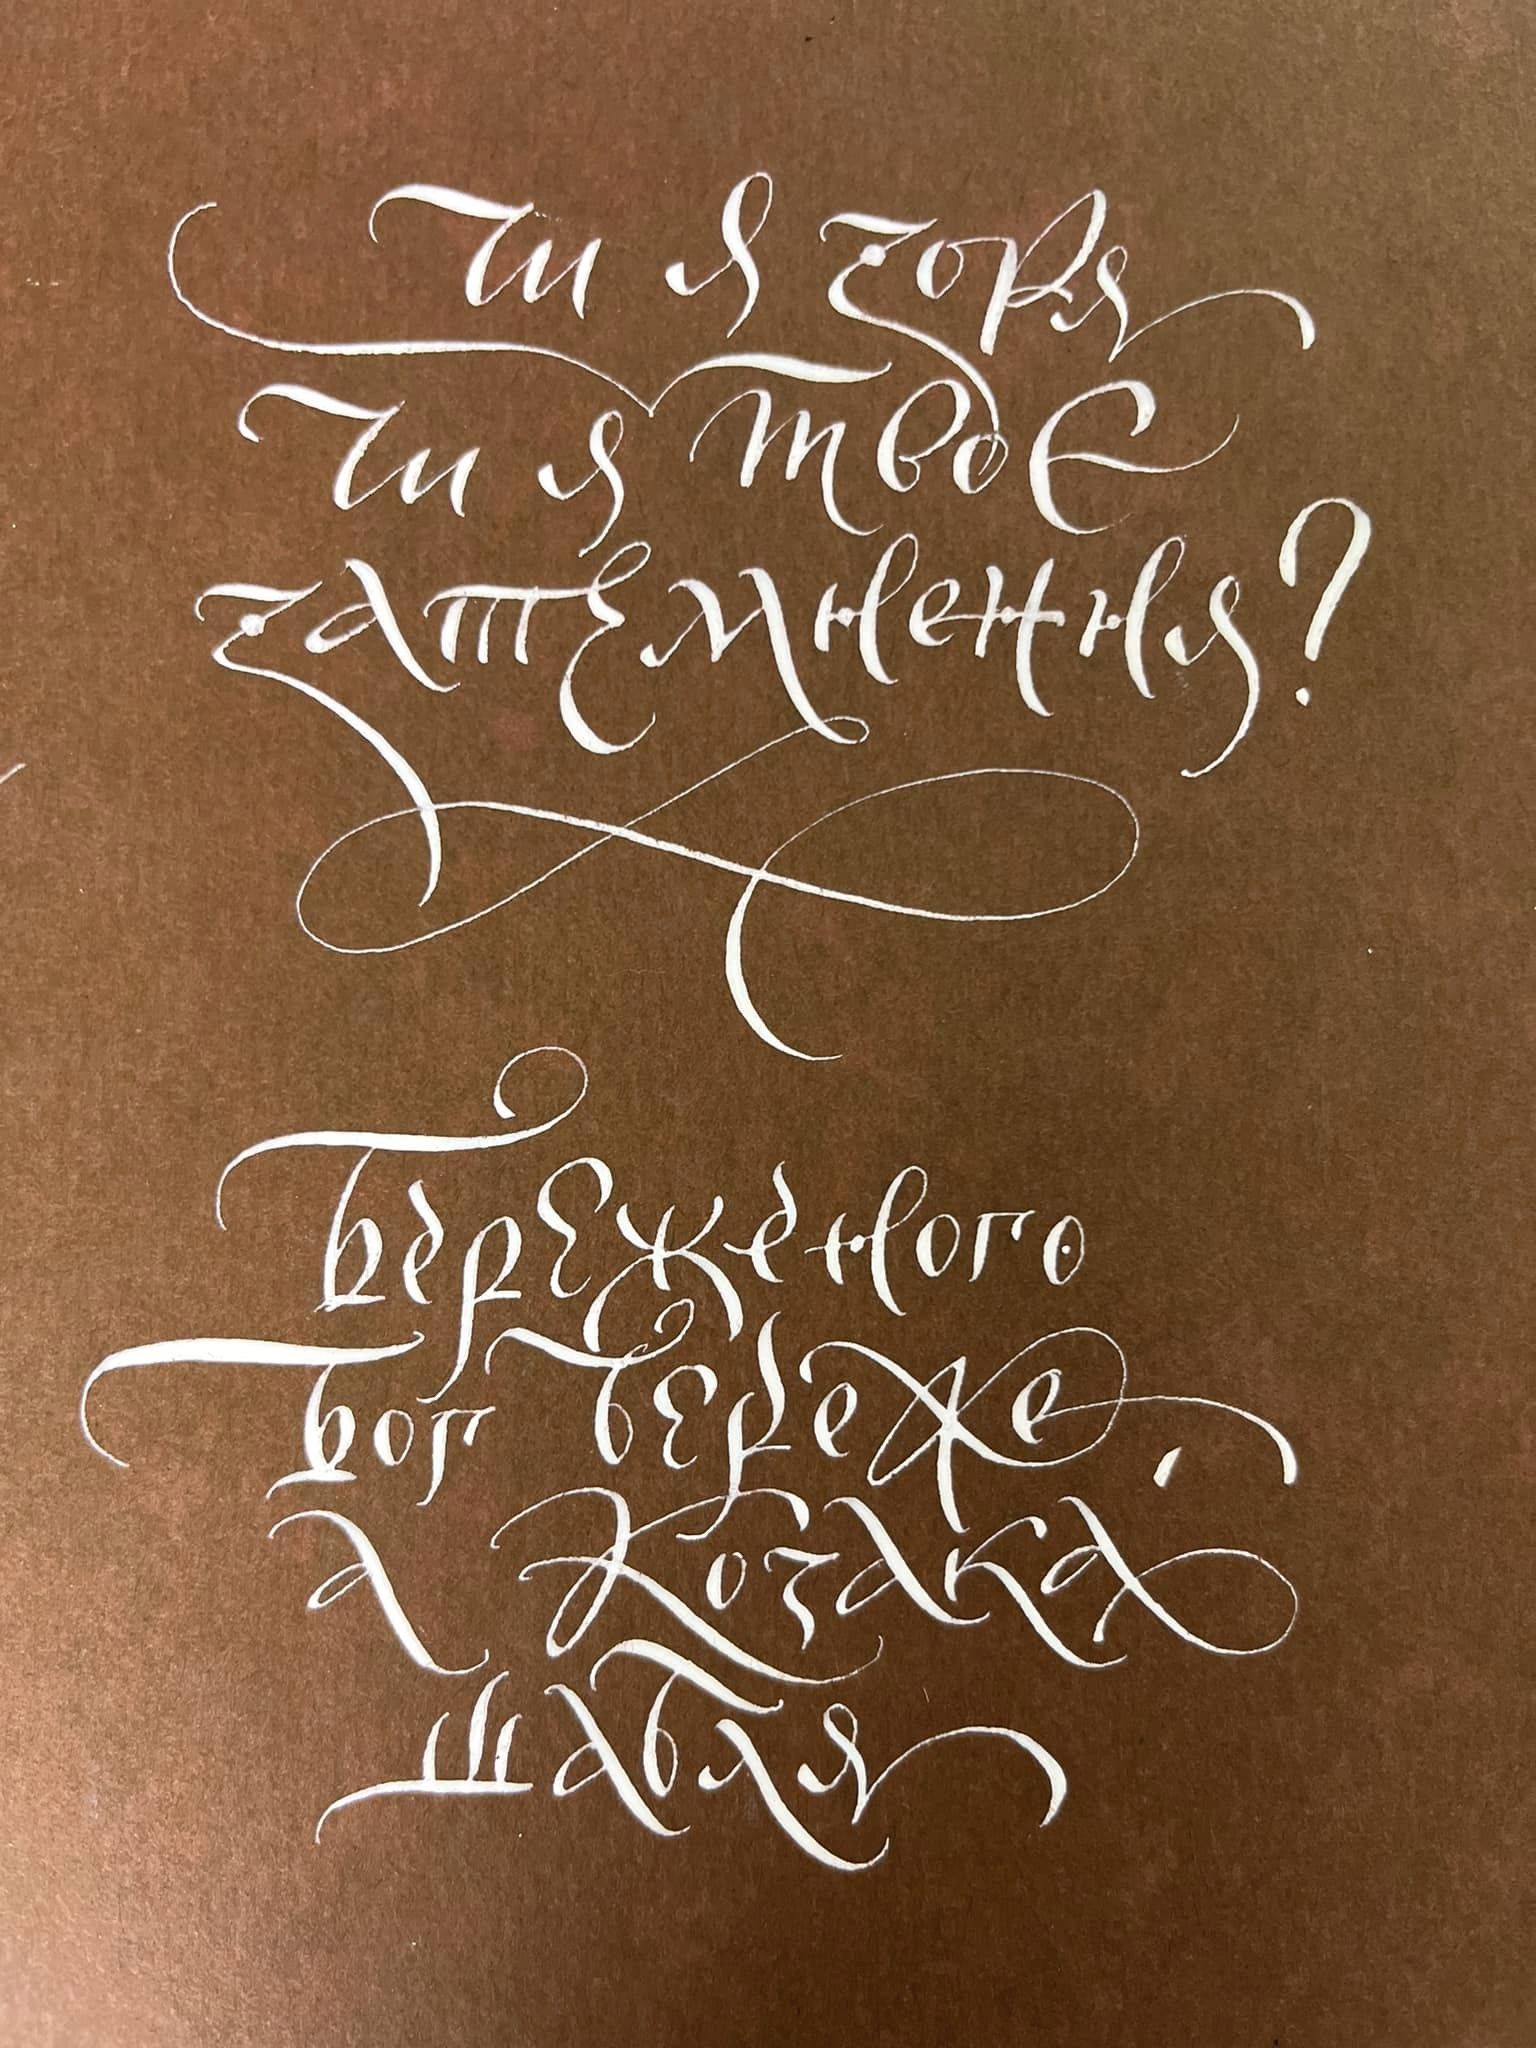 Чи я зоря
Чи я твоє
затемнення?
Береженого
Бог береже,
а Козака
шабля